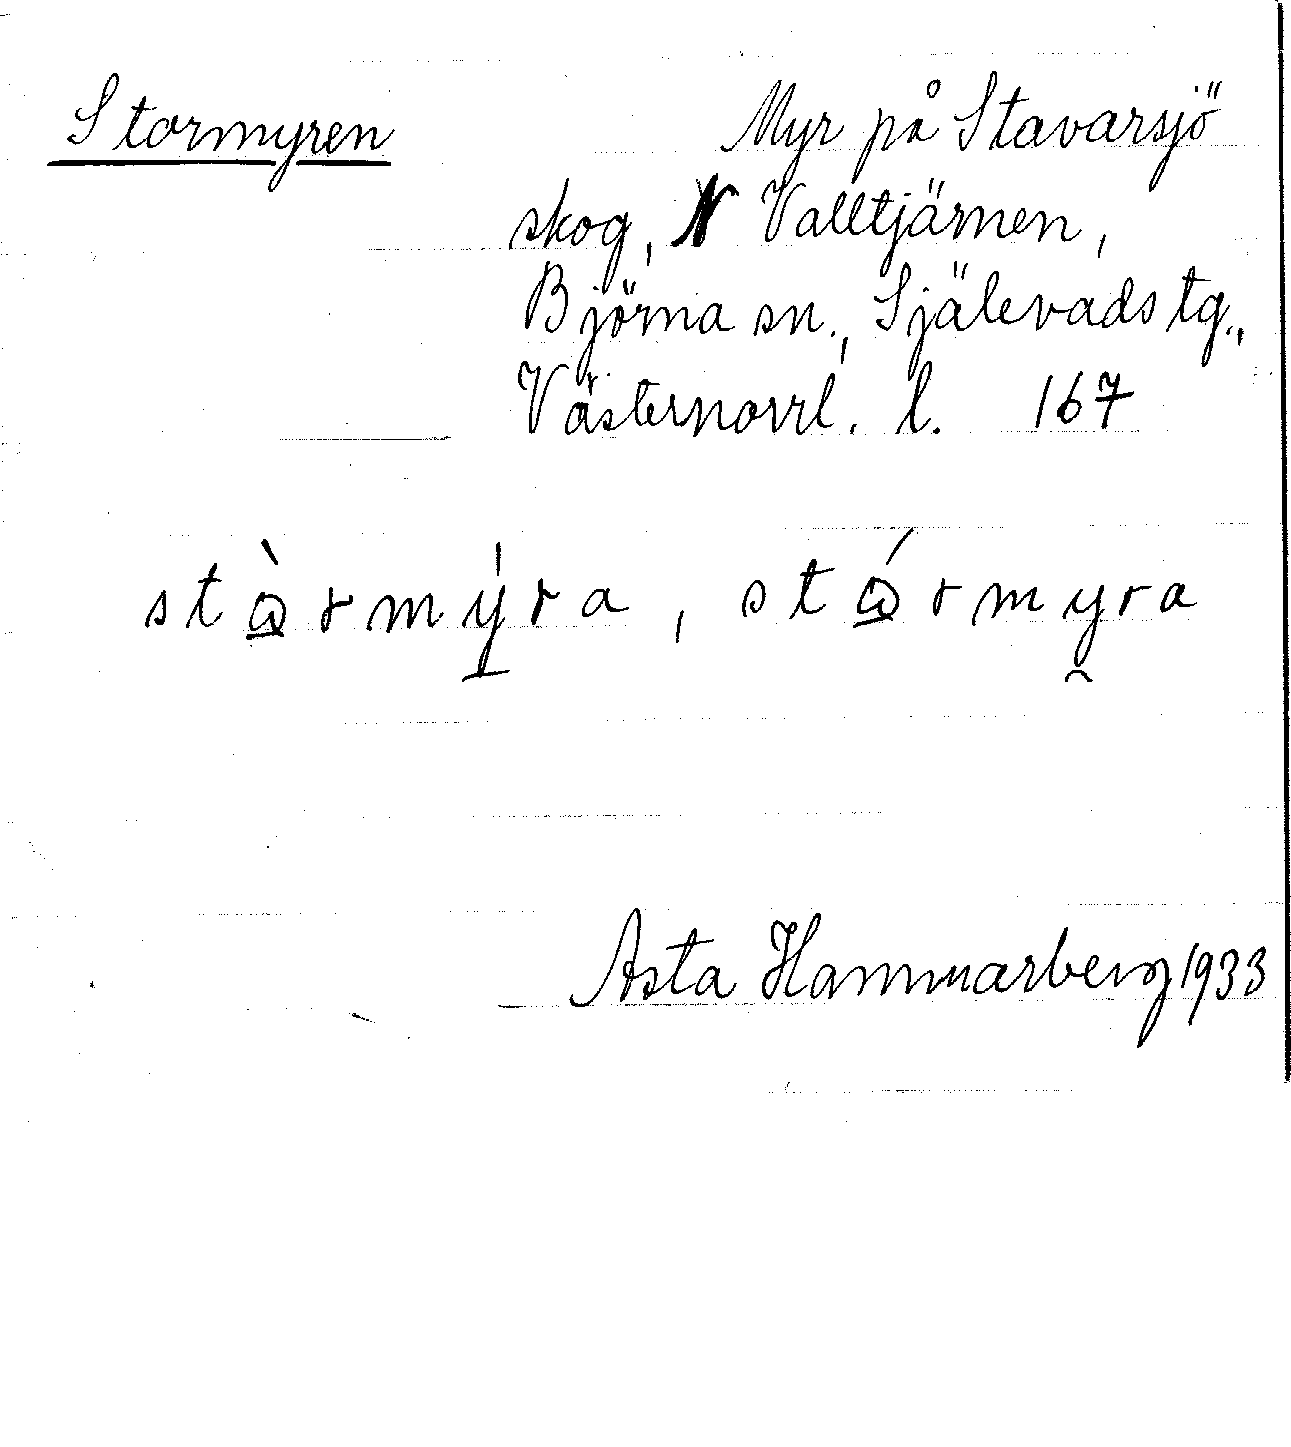 Stormyren Myr på Stavarsjö
skog, N Valltjärnen,
Björna sn., Själevads tg.,
Västernorrl. l. 167
stɷ̠̀rmý̠ra, stɷ̠́rmy̯ra
Asta Hammarberg 1933